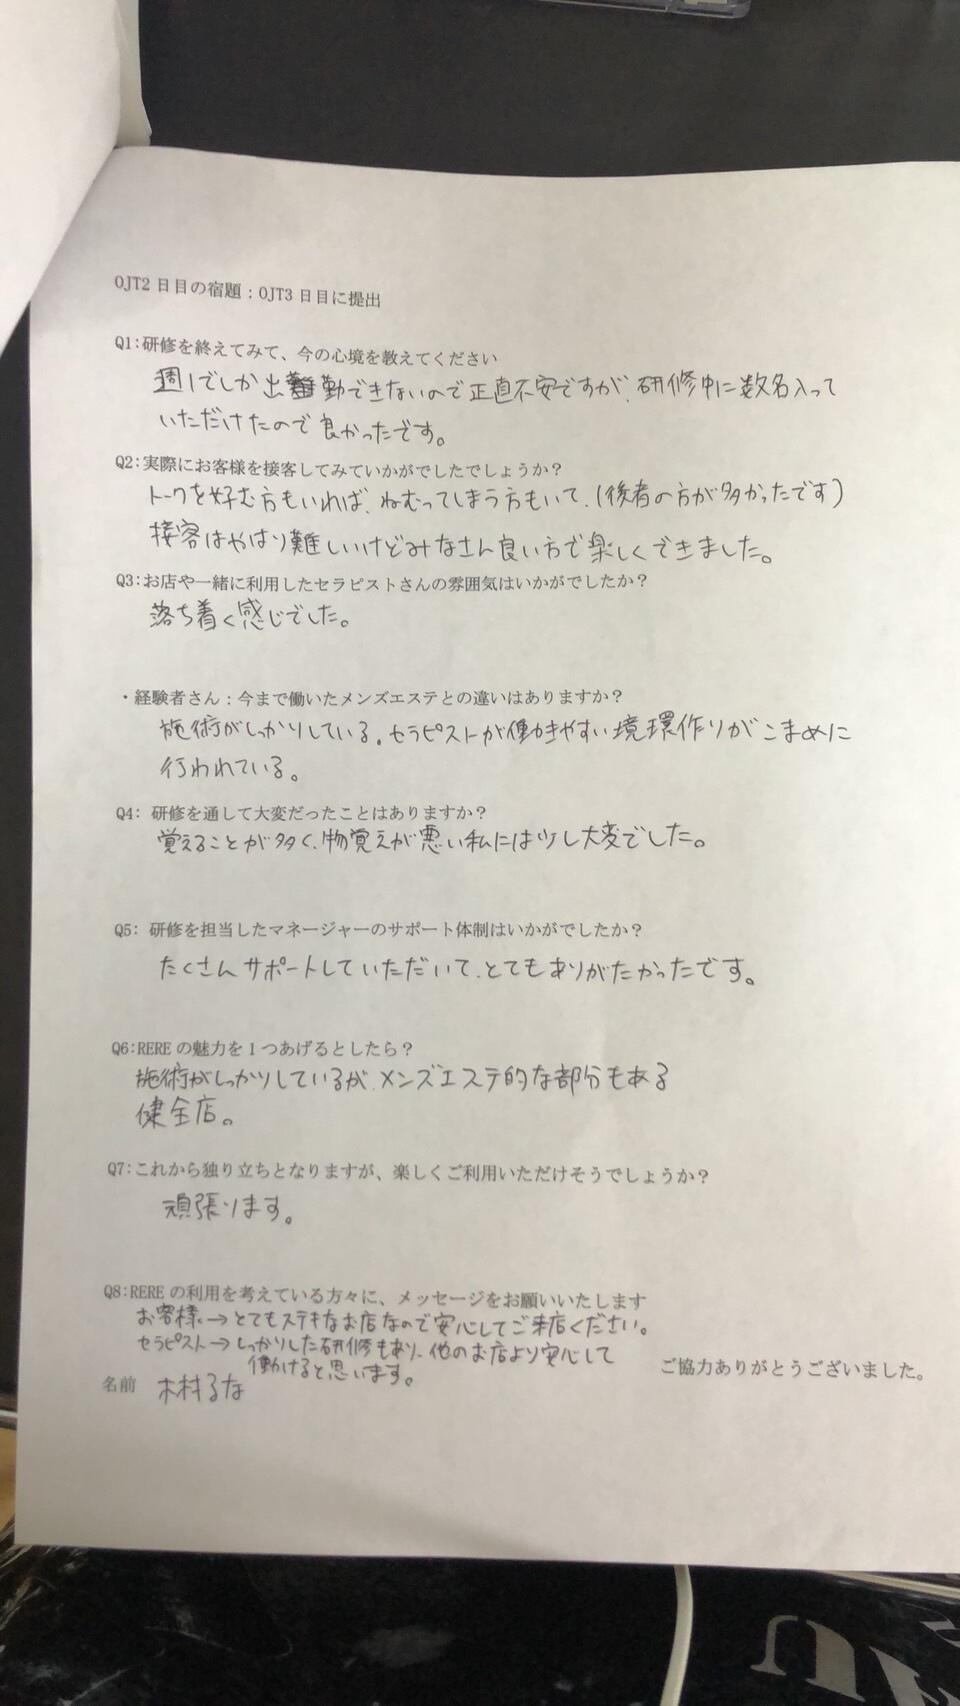 OJT2日目の宿題：OJT3日目に提出
Q1:研修を終えてみて、今の心境を教えてください
週1でしか出勤できないので正直不安ですが、研修中に数名入って
いただけたので良かったです。
Q2:実際にお客様を接客してみていかがでしたでしょうか？
トークを好む方もいれば、ねむってしまう方もいて、(後者の方が多かったです)
接客はやはり難しいけどみなさん良い方で楽しくできました。
Q3:お店や一緒に利用したセラピストさんの雰囲気はいかがでしたか？
落ち着く感じでした。
・経験者さん：今まで働いたメンズエステとの違いはありますか？
施術がしっかりしている。セラピストが働きやすい境環作りがこまめに
行われている。
Q4: 研修を通して大変だったことはありますか？
覚えることが多く、物覚えが悪い私には少し大変でした。
Q5: 研修を担当したマネージャーのサポート体制はいかがでしたか？
たくさんサポートしていただいて、とてもありがたかったです。
Q6:REREの魅力を1つあげるとしたら？
施術がしっかりしているが、メンズエステ的な部分もある
健全店。
Q7:これから独り立ちとなりますが、楽しくご利用いただけそうでしょうか？
頑張ります。
Q8:REREの利用を考えている方々に、メッセージをお願いいたします
お客様→とてもステキなお店なので安心してご来店ください。
セラピスト→しっかりした研修もあり、他のお店より安心して
働けると思います。
ご協力ありがとうございました。
名前 木村るな